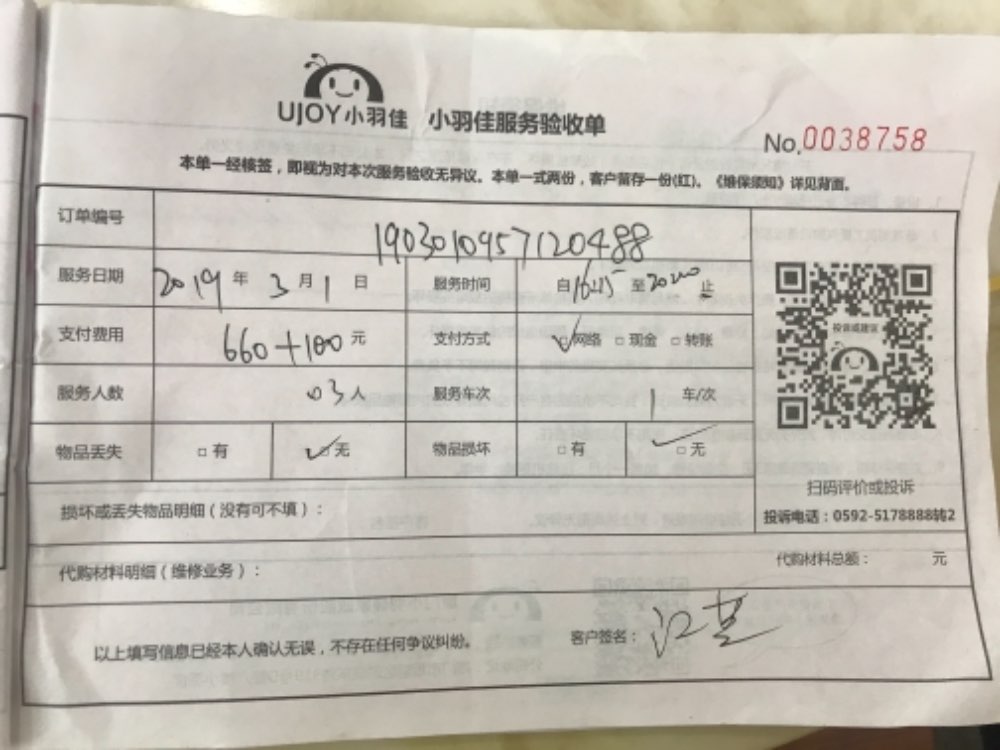 UJOY小羽佳 小羽佳服务验收单
No.0038758
本单一经核签，即视为对本次服务验收无异议。本单一式两份，客户留存一份(红)。《维保须知》详见背面。
订单编号 1903010957120488
服务日期 2019 年 3 月 1 日 服务时间 自16:15至20:00止
支付费用 660+100元 支付方式 ☑网络 □现金 □转账
服务人数 03人 服务车次 1 车/次
物品丢失 □有 ☑无 物品损坏 □有 ☑无
投诉或建议
扫码评价或投诉
投诉电话：0592-5178888转2
损坏或丢失物品明细（没有可不填）：
代购材料明细（维修业务）： 代购材料总额： 元
以上填写信息已经本人确认无误，不存在任何争议纠纷。 客户签名：